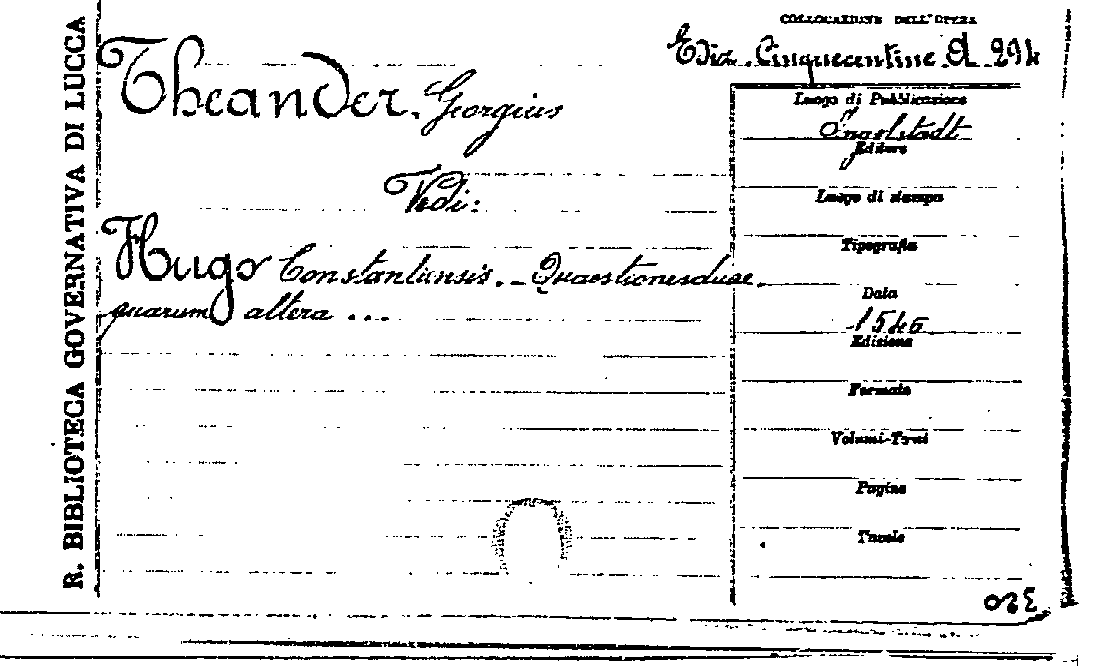 R. BIBLIOTECA GOVERNATIVA DI LUCCA
COLLOCAZIONE DELL'OPERA
Ediz. Cinquecentine A. 294
Theander. Georgius
Vedi:
Hugo Constantiensis. - Quaestiones duae.
quarum altera ...
Luogo di Pubblicazione
Ingolstadt
Editore
Luogo di stampa
Tipografia
Data
1546
Edizione
Formato
Volumi-Tomi
Pagine
Tavole